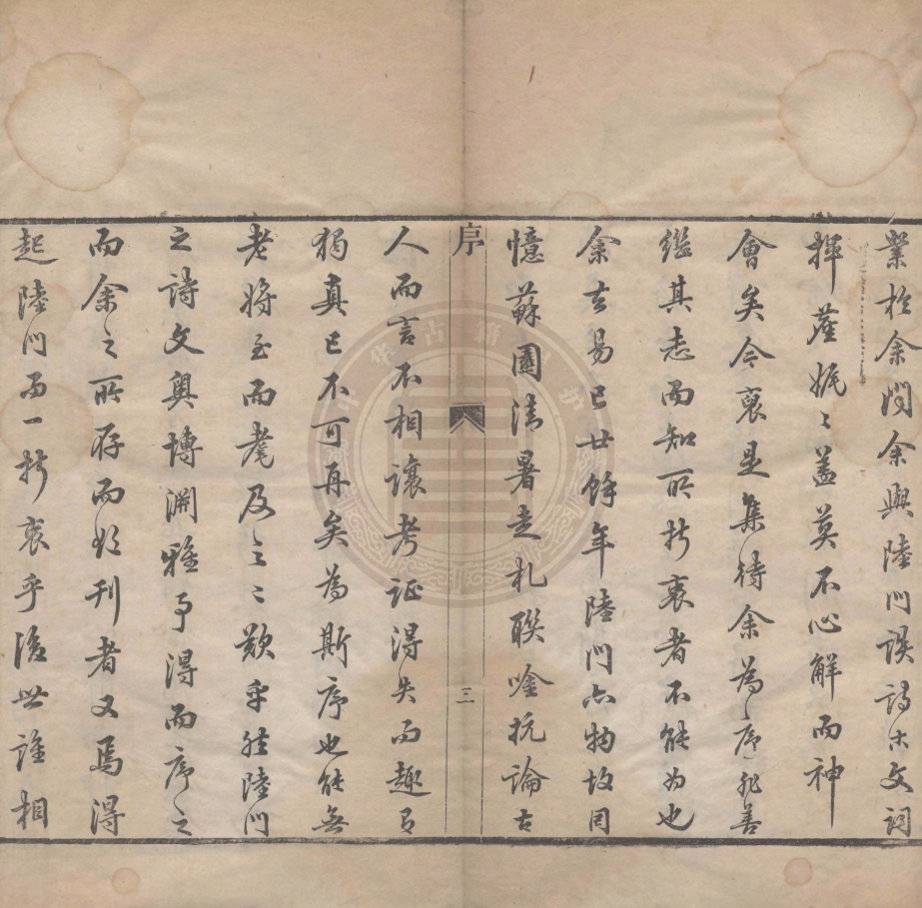 業於余間余與陸門談詩古文詞
揮麈娓〻蓋莫不心解而神
會矣今裒是集待余為序非善
繼其志而知所折衷者不能為也
余去易已廿餘年陸門亦物故因
憶蘇園清暑走札聯唫抗論古
序
三
人而言不相讓考証得失而趣有
獨真已不可再矣為斯序也能無
老將至而耄及之之歎乎然陸門
之詩文奧博淵雅予得而序之
而余之所存而欲刊者又焉得
起陸門而一折衷乎後世誰相